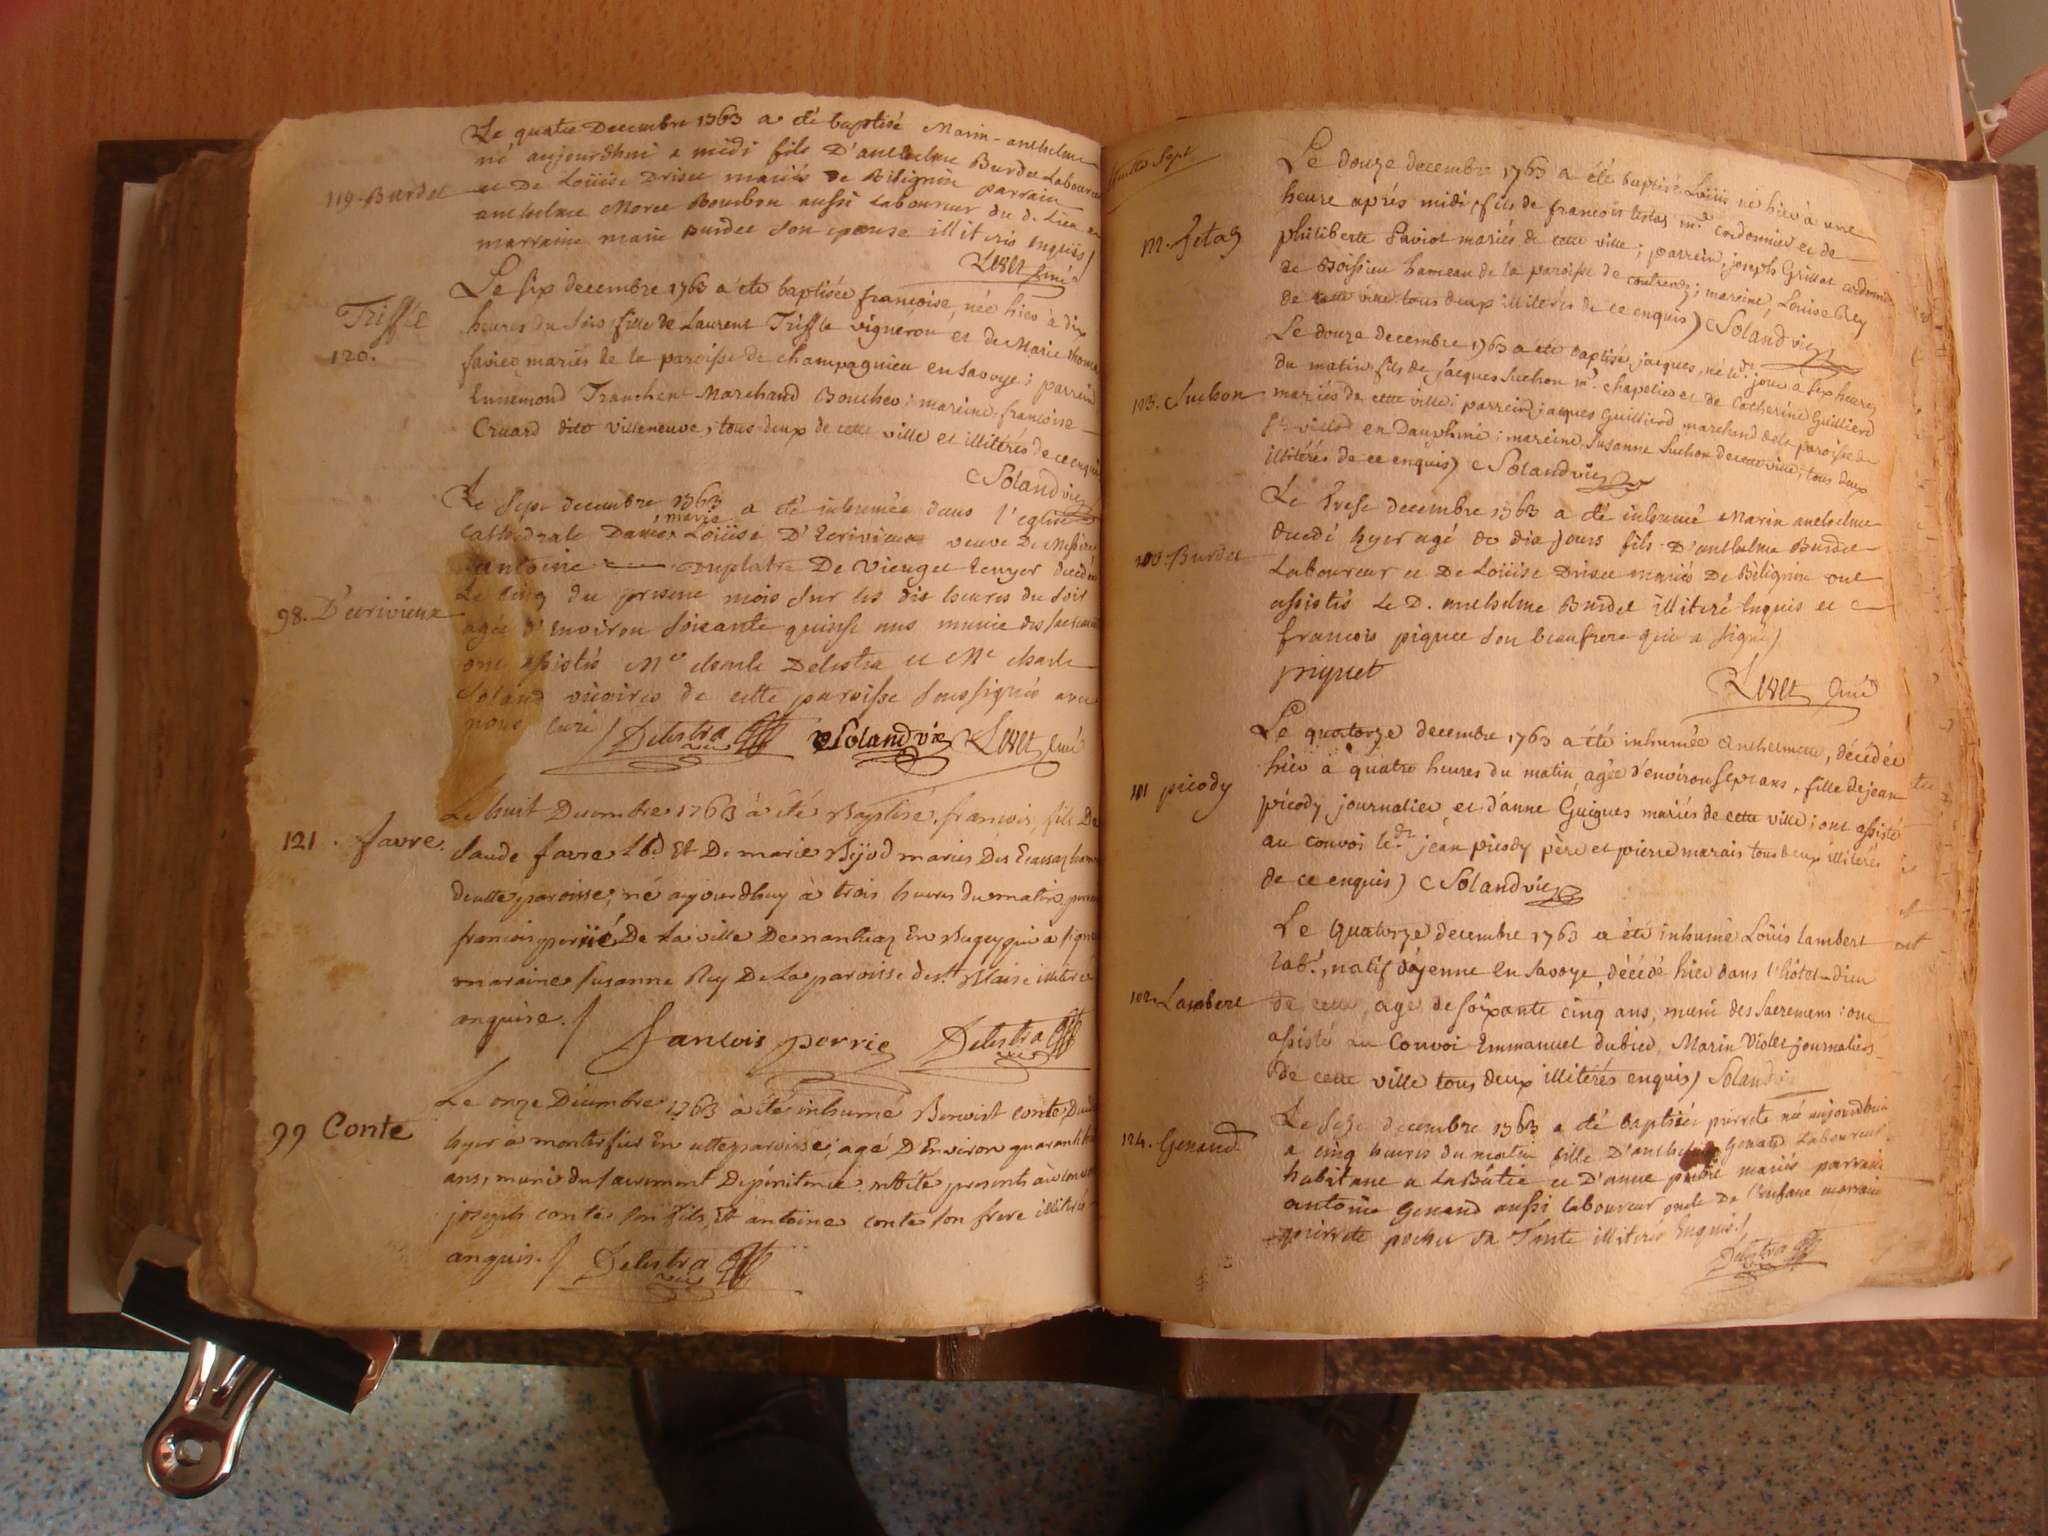 119. Burdet
Le quatre Decembre 1763 a été baptisé Marin-anthelme
né aujourdhui a midi fils D'anthelme Burdet Laboureur
et De Loüise Driset mariés de Bilignin parrain
anthelme Morec Bourbon aussi Laboureur du d. Lieu
marraine marie Burdet son epouse illiterés enquis/
Revet curé
Triffle
120.
Le six decembre 1763 a été baptisée francoise, née hier à dix
heures du soir fille de Laurent Triffle vigneron et de Marie
mariés de la paroisse de champagnieu en Savoye; parrein
Ennemond Tranchent Marchand Boucher; mareine francoise
Cruard dite villeneuve, tous deux de cette ville et illitérés de ce enquis
Soland vic
98. D'ecrivieux
Le Sept decembre 1763 a été inhumée dans l'eglise
cathedrale Dame marie Loüise D'Ecrivieux veuve De Messire
antoine Duplatre De Vieuget Ecuyer decedée
Le cinq du present mois sur les dix heures du soir
agée d'environ soixante quinse ans munie des sacremens
ont assistés Mre claude Delestra et Mre charle
Soland vicaires de cette paroisse soussignés avec
nous curé / Delestra vic Soland vic Revet curé
121. favre.
Le huit Decembre 1763 à été Baptisé francois, fils De
claude favre Lbd Et De marie Bijod mariés Des Ecassaz hameau
de cette paroisse, né aujourdhuy à trois heures du matin, parrein
francois perrié De La ville De nantuaz En Bugey qui a signé
maraine susanne Rey De La paroisse de st Blaise illiterée
anquise./
francois perrie Delestra vic
99 Conte
Le onze Décembre 1763 à été inhumé Benoist conte, Décédé
hyer à monterfier En cette paroisse, agé D'Environ quarante
ans, muni du sacrement De pénitence. ont été presents au convoi
joseph conte son fils, Et antoine conte son frere illiterés
anquis./ Delestra vic
feuillet sept
122. Jetas
Le douze decembre 1763 a été baptisé Loüis né hier à une
heure aprés midi, fils de francois Jestas me cordonnier et de
philiberte Saviot mariés de cette ville; parrein, joseph Grillat cordonnier
de Boissieu hameau de la paroisse de contrevoz; mareine, Louise Rey
de cette ville tous deux illitérés de ce enquis) Soland vic
123. Suchon
Le douze decembre 1763 a été baptisé jacques, né le dr jour à six heures
du matin fils de jacques Suchon me chapelier et de Catherine Guilliard
mariés de cette ville; parrein, jacques Guilliard marchand de la paroisse de
en Dauphiné; mareine Susanne Suchon de cette ville, tous deux
illitérés de ce enquis) Soland vic
100. Burdet
Le Trese decembre 1763 a été inhumé Marin anthelme
decedé hyer agé de dix jours fils D'anthelme Burdet
Laboureur et De Loüise Driset mariés De Bilignin ont
assistés Le D. anthelme Burdet illiteré Enquis et
francois piquet son beaufrere qui a signé)
piquet
Revet Curé
101 picody
Le quatorze decembre 1763 a été inhumée Anthelmette, décédée
hier à quatre heures du matin agée d'environ sept ans, fille de jean
picody journalier, et d'anne Guigues mariés de cette ville; ont assisté
au convoi le dr jean picody père et pierre marais tous deux illitérés
de ce enquis) Soland vic
102. Lambert
Le quatorze decembre 1763 a été inhumé Loüis Lambert
Labr, natif d'ayenne en Savoye, décédé hier dans l'hôtel-dieu
de cette, agé de soixante cinq ans, muni des sacremens: ont
assisté au Convoi Emmanuel dubied, Marin Violet journaliers
de cette ville tous deux illitérés enquis) Soland vic
124. Genand.
Le seze decembre 1763 a été baptisée pierrete née aujourdhui
a cinq heures du matin fille D'anthelme Genand Laboureur
habitant a LaBatie et D'anne mariés parrain
antoine Genand aussi laboureur oncle De l'enfant marraine
pierrete pochet sa Tante illiterés Enquis./
Delestra vic